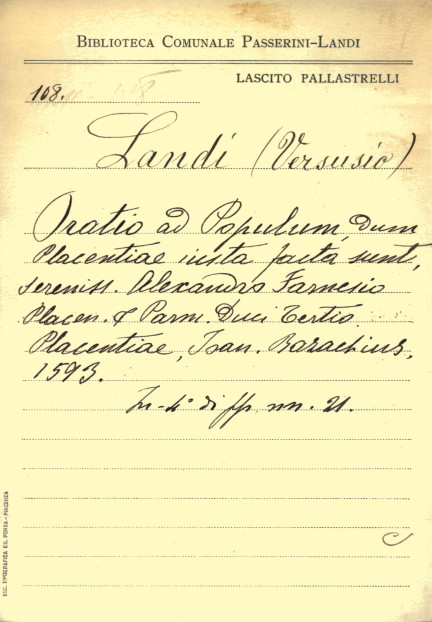 BIBLIOTECA COMUNALE PASSERINI-LANDI
LASCITO PALLASTRELLI
108.
Landi (Versusio)
Oratio ad Populum, dum
Placentiae iusta facta sunt,
sereniss. Alexandro Farnesio
Placen. & Parm. Duci Tertio.
Placentiae, Joan. Bazachius,
1593.
In-4° di pp. nn. 21.
SOC. TIPOGRAFICA ED. PORTA - PIACENZA